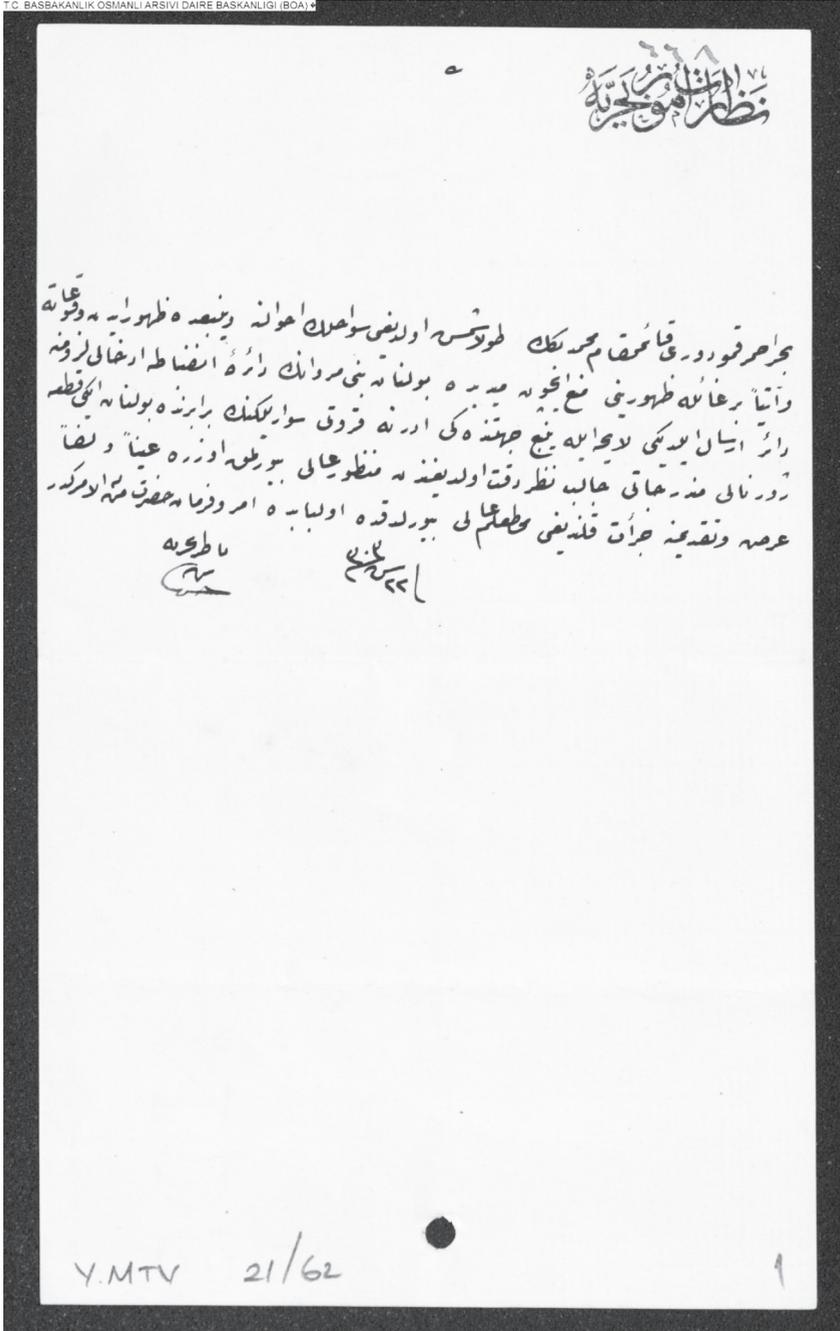 T C. BASBAKANLIK OSMANLI ARSIVI DAIRE BASKANLIGI (BOA)
٦٦٨
نظارت امور بحریه
بحر احمر قومودوری قائممقام محمد بكك طولاشمش اولدیغی سواحلك احوالنه وینبعده ظهور ایدن وقوعاته
وآتیاً بر غائله ظهورینی منع ایچون میدیده بولنان بنی مروانك دائرۀ انضباطه ادخالی لزومنه
دائر ارسال ایلدیكی لایحه ایله ینبع جهتنده كی ادرنه قروتی سواریسنك برابرنده بولنان ایكی قطعه
ژورنالی مندرجاتی جالب نظر دقت اولدیغندن منظور عالی بیورلمق اوزره عیناً ولفاً
عرض وتقدیمنه جرأت قلندیغی محاط علم عالی بیورلدقده اولبابده امر وفرمان حضرت من له الامركدر
ناظر بحریه
Y.MTV 21/62
1